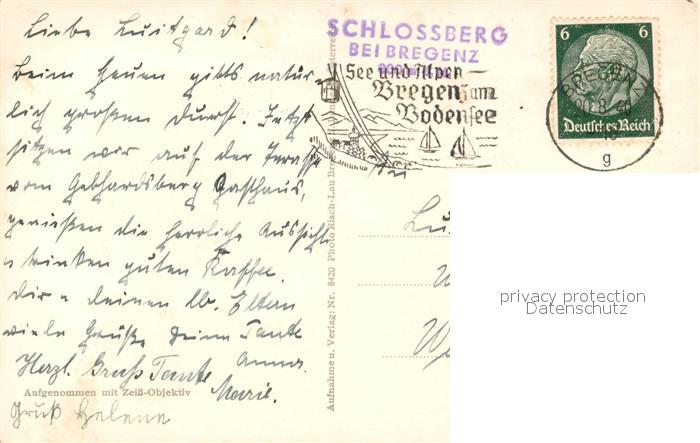 Liebe Luitgard!
Beim Heuen gibts natür-
lich großen Durst. Jetzt
sitzen wir auf der Terasse
vom Gebhardsberg Gasthaus,
genießen die herrliche Aussicht
u trinken guten Kaffee.
Dir u deinen lb. Eltern
viele Grüße Deine Tante
Anna.
Herzl. Gruß Tante
Marie.
Gruß Helene
Aufgenommen mit Zeiß-Objektiv
Aufnahme u. Verlag: Nr. 8420 Photo Risch-Lau
SCHLOSSBERG
BEI BREGENZ
See und Alpen
Bregenz am
Bodensee
6 6
Deutsches Reich
BREGENZ
20.8.
g
An
privacy protection
Datenschutz